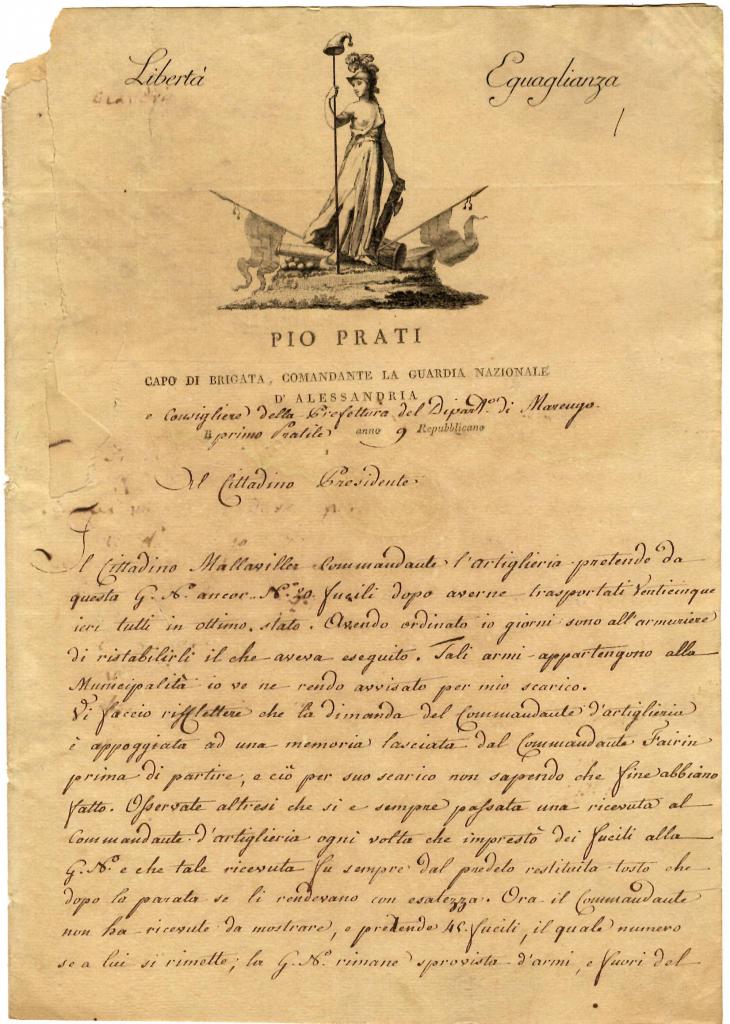 Libertà
Eguaglianza
PIO PRATI
CAPO DI BRIGATA, COMANDANTE LA GUARDIA NAZIONALE
D' ALESSANDRIA
e Consigliere della Prefettura del Dipart.º di Marengo
Il primo Pratile anno 9 Repubblicano
Al Cittadino Presidente
Il Cittadino Mallaviller Commandante l'artiglieria pretende da
questa G. N.ª ancor N.º 20 fucili dopo averne trasportati venticinque
ieri tutti in ottimo stato. Avendo ordinato io giorni sono all'armuriere
di ristabilirli il che aveva eseguito. Tali armi appartengono alla
Municipalità io ve ne rendo avvisato per mio scarico.
Vi faccio rifflettere che la dimanda del Commandante d'artiglieria
è appoggiata ad una memoria lasciata dal Commandante Fairin
prima di partire, e ciò per suo scarico non sapendo che fine abbiano
fatto. Osservate altresi che si e sempre passata una ricevuta al
Commandante d'artiglieria ogni volta che imprestò dei fucili alla
G. N.ª e che tale ricevuta fu sempre dal predeto restituita tosto che
dopo la parata se li rendevano con esatezza. Ora il Commandante
non ha ricevute da mostrare, e pretende 45 fucili, il quale numero
se a lui si rimette; la G. N.ª rimane sprovista d'armi, e fuori del